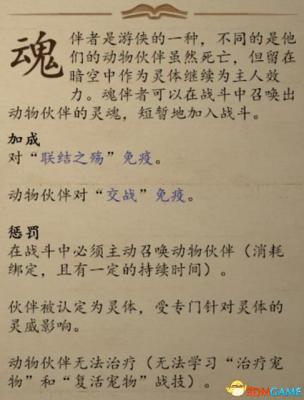 魂伴者是游侠的一种，不同的是他
们的动物伙伴虽然死亡，但留在
暗空中作为灵体继续为主人效
力。魂伴者可以在战斗中召唤出
动物伙伴的灵魂，短暂地加入战斗。
加成
对“联结之殇”免疫。
动物伙伴对“交战”免疫。
惩罚
在战斗中必须主动召唤动物伙伴（消耗
绑定，且有一定的持续时间）。
伙伴被认定为灵体，受专门针对灵体的
灵威影响。
动物伙伴无法治疗（无法学习“治疗宠
物”和“复活宠物”战技）。
3DMGAME